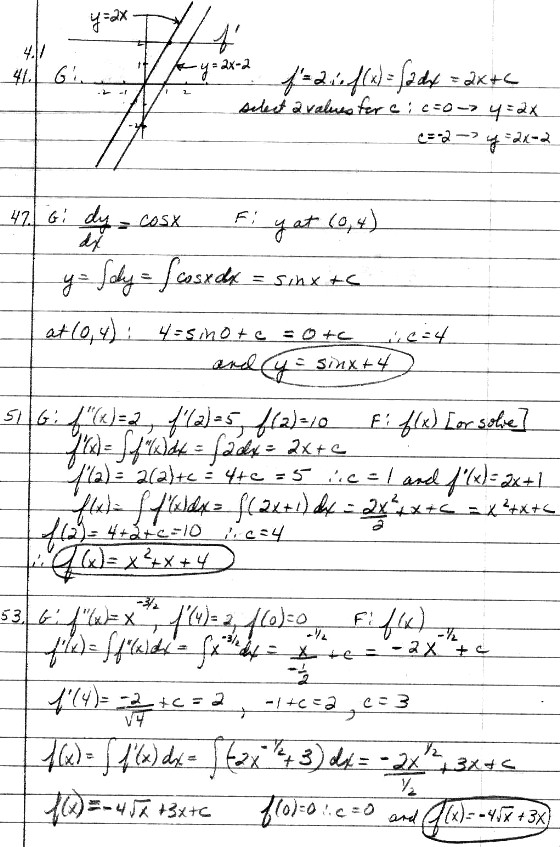 y=2x
f'
4.1
y=2x-2
41. G:
f'=2 ∴ f(x) = ∫2dx = 2x+c
select 2 values for c : c=0 → y=2x
c=-2 → y=2x-2
-2 -1 1 2
1
-2
47. G: dy/dx = cosx F: y at (0,4)
y = ∫dy = ∫cosxdx = sinx + c
at (0,4) : 4 = sin0 + c = 0+c ∴ c=4
and y = sinx+4
51 G: f"(x)=2, f'(2)=5, f(2)=10 F: f(x) [or solve]
f'(x) = ∫f"(x)dx = ∫2dx = 2x+c
f'(2) = 2(2)+c = 4+c = 5 ∴ c=1 and f'(x)=2x+1
f(x) = ∫f'(x)dx = ∫(2x+1)dx = 2x²/2 + x + c = x²+x+c
f(2) = 4+2+c=10 ∴ c=4
∴ f(x) = x²+x+4
53. G: f"(x) = x^(-3/2), f'(4)=2, f(0)=0 F: f(x)
f'(x) = ∫f"(x)dx = ∫x^(-3/2)dx = x^(-1/2)/(-1/2) + c = -2x^(-1/2) + c
f'(4) = -2/√4 + c = 2 , -1+c=2 , c=3
f(x) = ∫f'(x)dx = ∫(-2x^(-1/2)+3)dx = -2x^(1/2)/(1/2) + 3x + c
f(x) = -4√x + 3x + c f(0)=0 ∴ c=0 and f(x) = -4√x + 3x